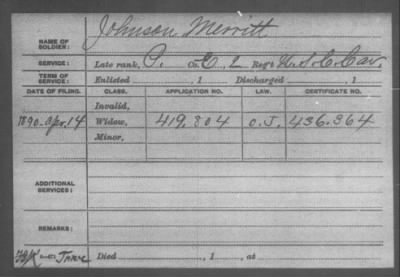 NAME OF SOLDIER: Johnson Merritt
SERVICE: Late rank, P. Co. E, 2 Reg't U. S. C. Cav.
TERM OF SERVICE: Enlisted , 1 Discharged , 1
DATE OF FILING. CLASS. APPLICATION NO. LAW. CERTIFICATE NO.
Invalid,
1890. Apr. 14 Widow, 419.804 O. J. 436.364
Minor,
ADDITIONAL SERVICES:
REMARKS:
Died , 1 , at